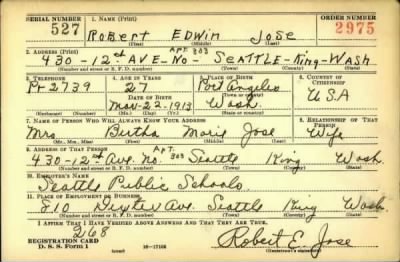 SERIAL NUMBER 1. NAME (Print) ORDER NUMBER
527 ROBERT EDWIN JOSE 2975
(First) (Middle) (Last)
2. ADDRESS (Print) APT. 303
430-12th AVE-NO- SEATTLE-King-WASH
(Number and street or R. F. D. number) (Town) (County) (State)
3. TELEPHONE 4. AGE IN YEARS 5. PLACE OF BIRTH 6. COUNTRY OF CITIZENSHIP
Pr 2739 27 Port Angeles
DATE OF BIRTH (Town or county)
Nov-22-1913 Wash. USA
(Exchange) (Number) (Mo.) (Day) (Yr.) (State or country)
7. NAME OF PERSON WHO WILL ALWAYS KNOW YOUR ADDRESS 8. RELATIONSHIP OF THAT PERSON
Mrs Bertha Marie Jose Wife
(Mr., Mrs., Miss) (First) (Middle) (Last)
9. ADDRESS OF THAT PERSON
430-12th Ave. No. APT 303 Seattle King Wash.
(Number and street or R. F. D. number) (Town) (County) (State)
10. EMPLOYER'S NAME
Seattle Public Schools
11. PLACE OF EMPLOYMENT OR BUSINESS
810 Dexter Ave. Seattle King Wash.
(Number and street or R. F. D. number) (Town) (County) (State)
I AFFIRM THAT I HAVE VERIFIED ABOVE ANSWERS AND THAT THEY ARE TRUE.
268
REGISTRATION CARD
D. S. S. Form 1 16-17105 Robert E. Jose